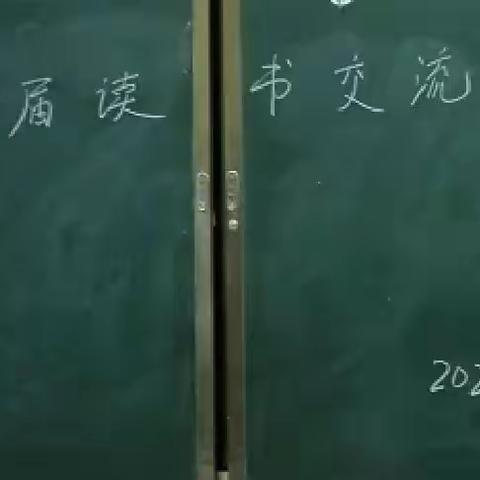 届读书交流
202